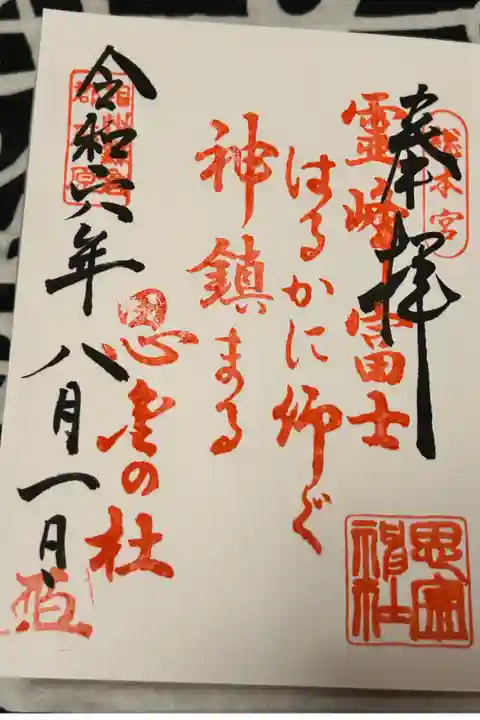 総本宮
奉拝
靈峰富士
はるかに仰ぐ
神鎮まる
思金の杜
令和六年八月一日
思金
神社